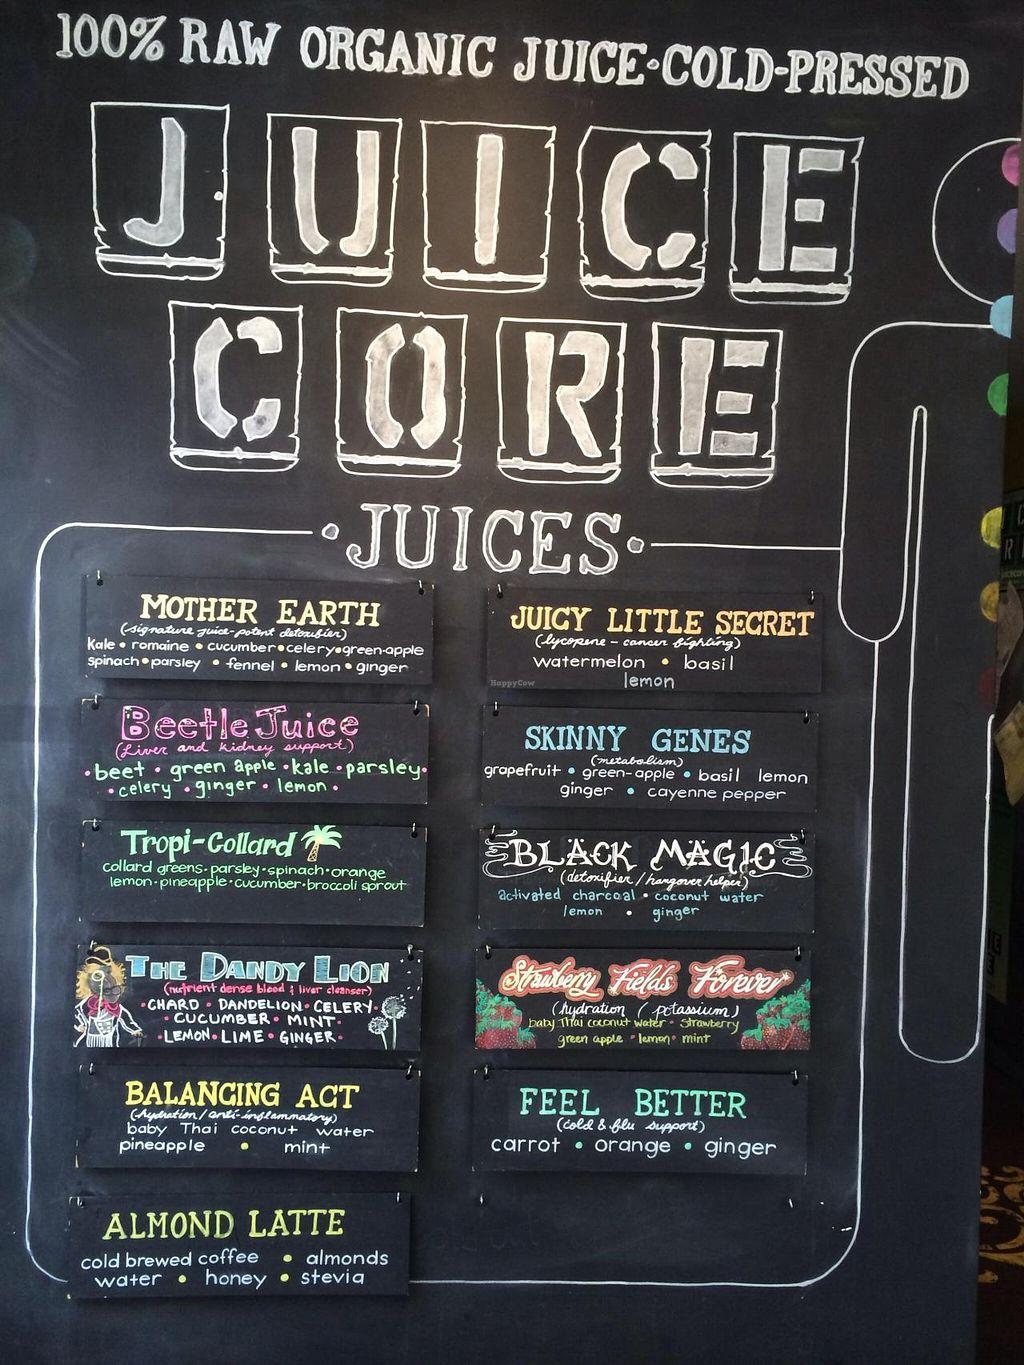 100% RAW ORGANIC JUICE·COLD-PRESSED
JUICE
CORE
·JUICES·
MOTHER EARTH
(signature juice-potent detoxifier)
kale • romaine • cucumber•celery•green-apple
spinach•parsley • fennel • lemon • ginger
Beetle Juice
(liver and kidney support)
•beet • green apple •kale •parsley•
•celery •ginger •lemon •
Tropi-Collard
collard greens•parsley•spinach•orange
lemon•pineapple•cucumber•broccoli sprout
THE DANDY LION
(nutrient dense blood & liver cleanser)
•CHARD • DANDELION•CELERY•
•CUCUMBER • MINT•
•LEMON• LIME • GINGER•
BALANCING ACT
(hydration/anti-inflammatory)
baby Thai coconut water
pineapple • mint
ALMOND LATTE
cold brewed coffee • almonds
water • honey • stevia
JUICY LITTLE SECRET
(lycopene - cancer fighting)
watermelon • basil
lemon
HappyCow
SKINNY GENES
(metabolism)
grapefruit • green-apple • basil lemon
ginger • cayenne pepper
BLACK MAGIC
(detoxifier/hangover helper)
activated charcoal • coconut water
lemon • ginger
Strawberry Fields Forever
(hydration / potassium)
baby Thai coconut water • strawberry
green apple • lemon • mint
FEEL BETTER
(cold & flu support)
carrot • orange • ginger